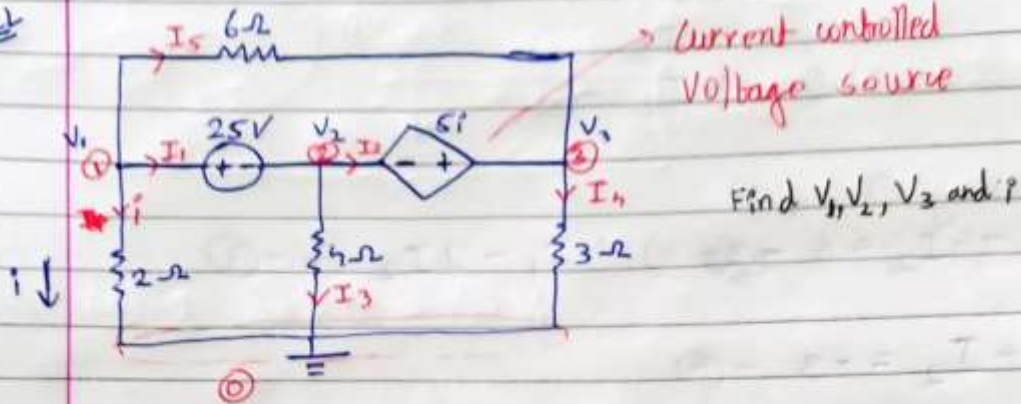 I5 6Ω
Current controlled
Voltage source
V1 25V V2 5i V3
1 I1 + - 2 I2 - + 3
i I4
Find V1, V2, V3 and i
i ↓ 2Ω 4Ω 3Ω
I3
0